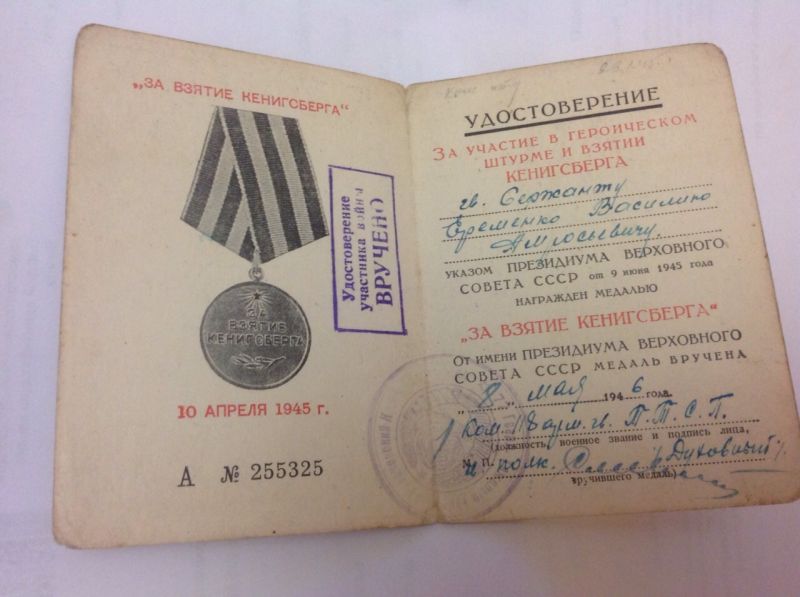 „ЗА ВЗЯТИЕ КЕНИГСБЕРГА“
ЗА
ВЗЯТИЕ
КЕНИГСБЕРГА
Удостоверение
участника войны
ВРУЧЕНО
10 АПРЕЛЯ 1945 г.
А № 255325
УДОСТОВЕРЕНИЕ
ЗА УЧАСТИЕ В ГЕРОИЧЕСКОМ
ШТУРМЕ И ВЗЯТИИ
КЕНИГСБЕРГА
гв. Сержанту
Еременко Василию
УКАЗОМ ПРЕЗИДИУМА ВЕРХОВНОГО
СОВЕТА СССР от 9 июня 1945 года
НАГРАЖДЕН МЕДАЛЬЮ
„ЗА ВЗЯТИЕ КЕНИГСБЕРГА“
От имени ПРЕЗИДИУМА ВЕРХОВНОГО
СОВЕТА СССР МЕДАЛЬ ВРУЧЕНА
„8„ мая 1946 года.
гв. П.Т.С.П.
(должность, военное звание и подпись лица,
М. П. п/полк. /Духовный/
вручившего медаль)